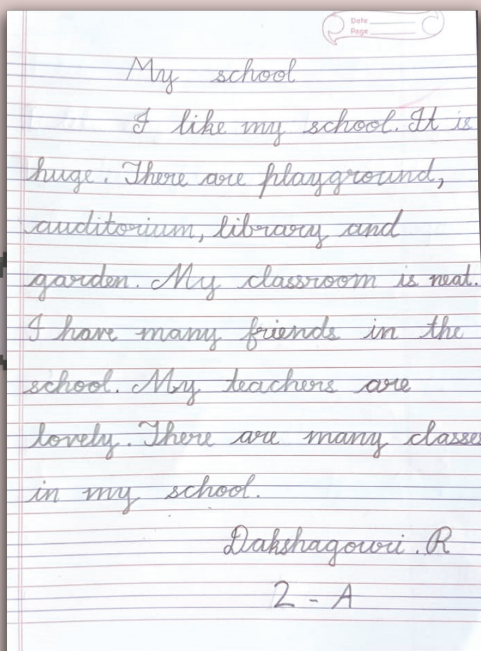 Date
Page
My school
I like my school. It is
huge. There are playground,
auditorium, library and
garden. My classroom is neat.
I have many friends in the
school. My teachers are
lovely. There are many classes
in my school.
Dakshagowri. R
2 - A